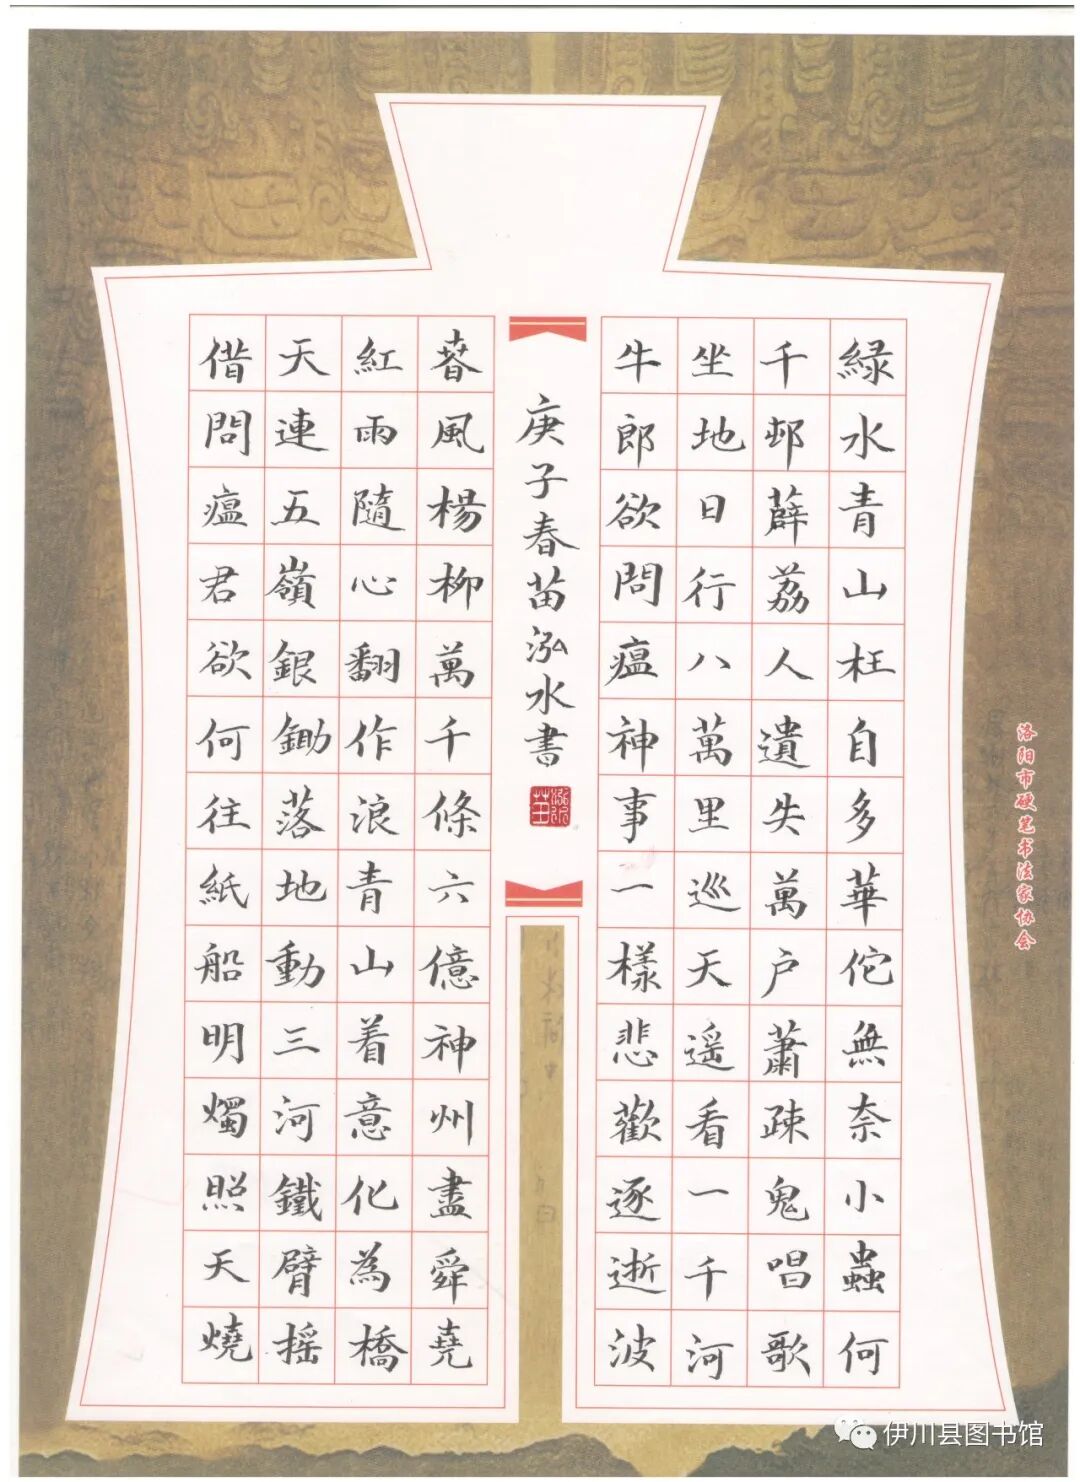 緑水青山枉自多華佗無奈小蟲何
千邨薜荔人遺失萬户蕭疎鬼唱歌
坐地日行八萬里巡天遥看一千河
牛郎欲問瘟神事一樣悲歡逐逝波
庚子春苗泓水書
萅風楊柳萬千條六億神州盡舜堯
紅雨隨心翻作浪青山着意化為橋
天連五嶺銀鋤落地動三河鐵臂摇
借問瘟君欲何往紙船明燭照天燒
洛阳市硬笔书法家协会
伊川县图书馆